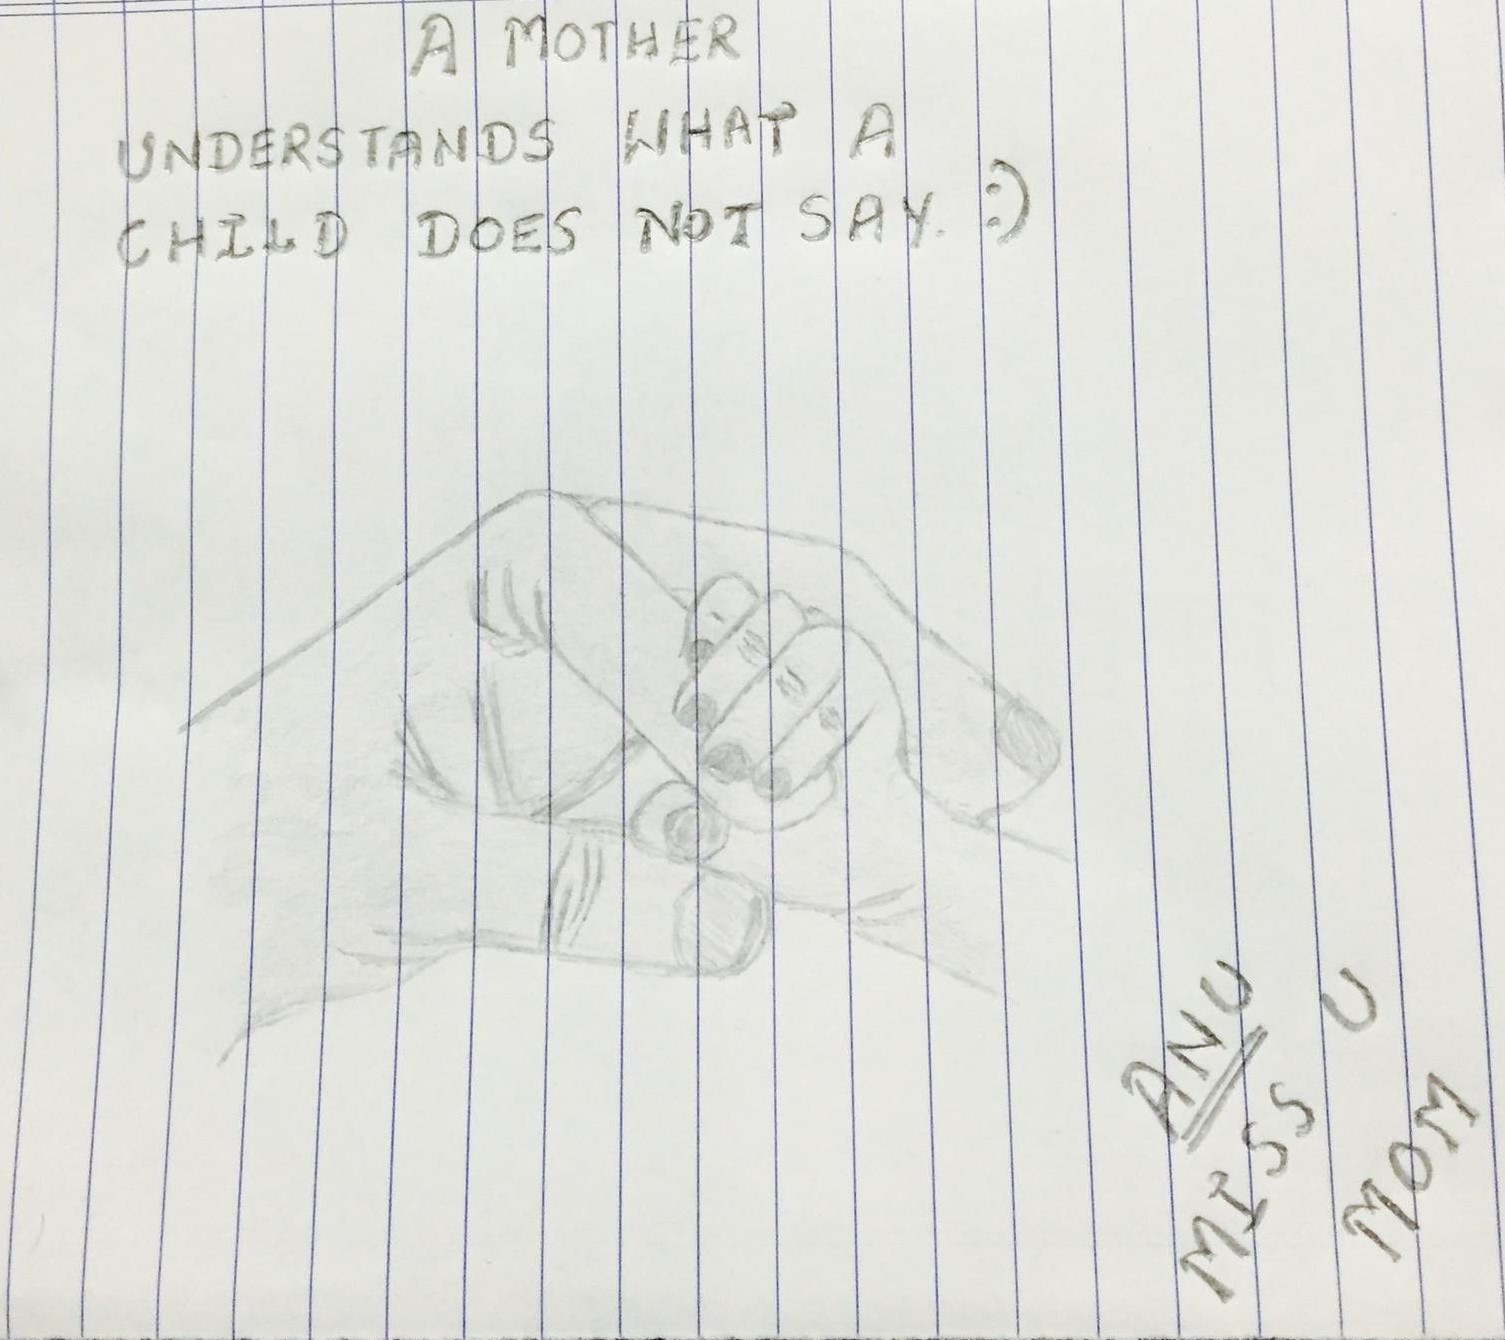 A MOTHER
UNDERSTANDS WHAT A
CHILD DOES NOT SAY. :)
ANU
MISS U
MOM